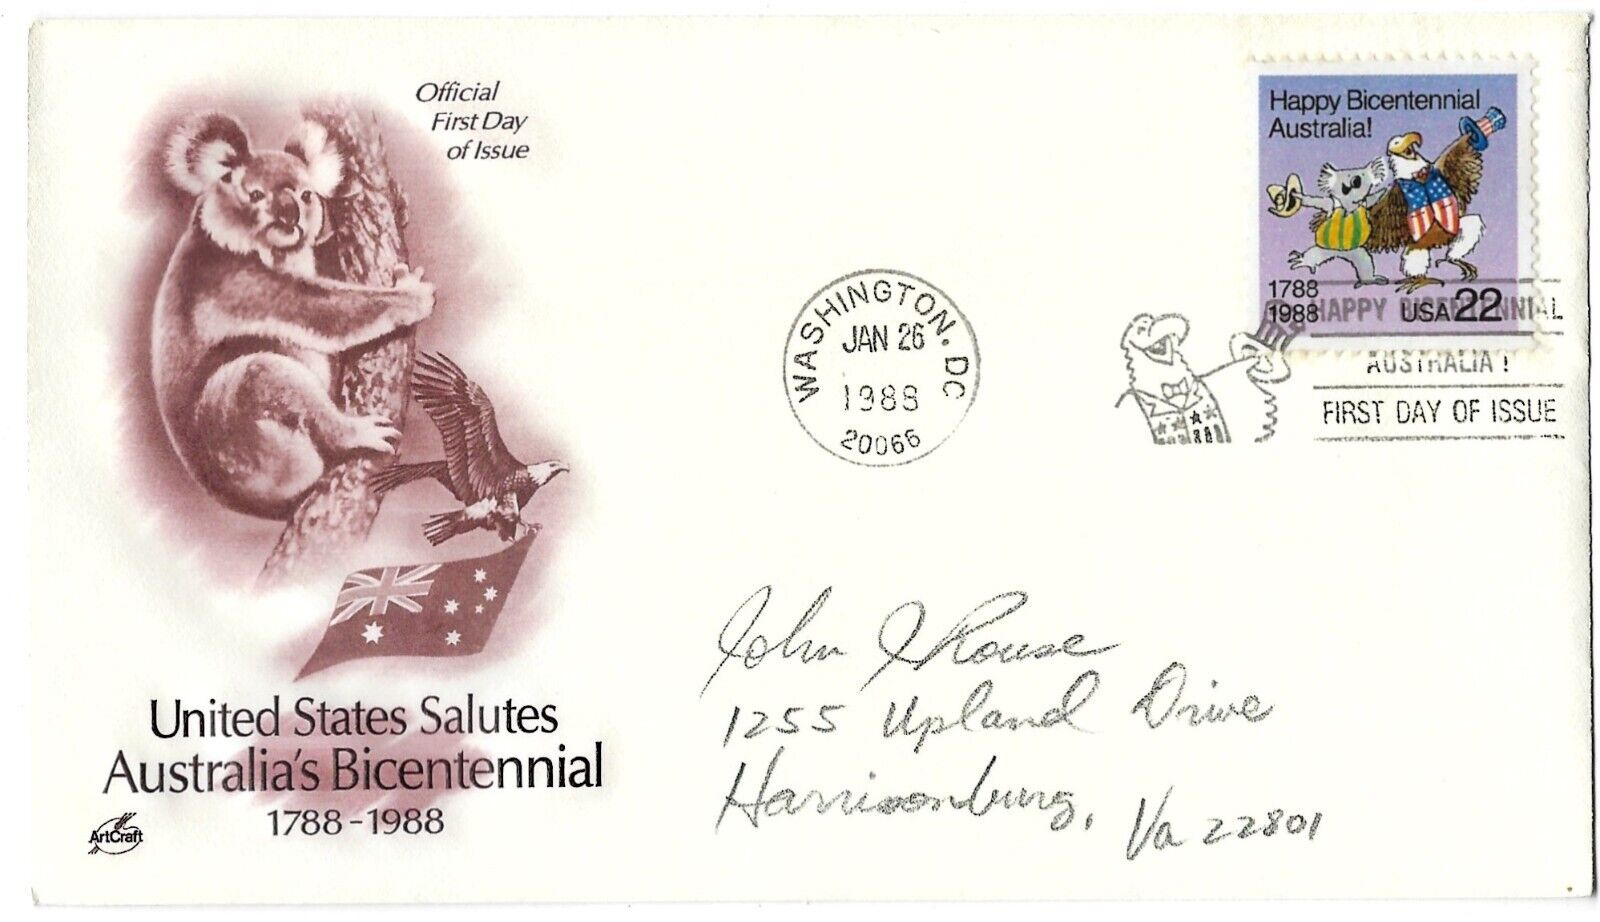 Official
First Day
of Issue
Happy Bicentennial
Australia!
1788
1988
USA 22
WASHINGTON, DC
JAN 26
1988
20066
HAPPY BICENTENNIAL
AUSTRALIA !
FIRST DAY OF ISSUE
John
1255 Upland Drive
Harrisonburg, Va 22801
United States Salutes
Australia's Bicentennial
1788-1988
ArtCraft